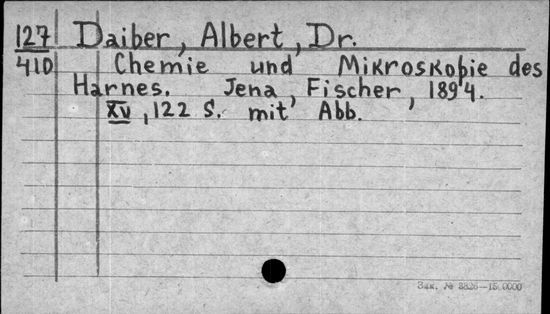 127 Daiber, Albert, Dr.
410 Chemie und Mikroskopie des
Harnes. Jena, Fischer, 1894.
XV, 122 S. mit Abb.
Зак. № 3326—15.0000